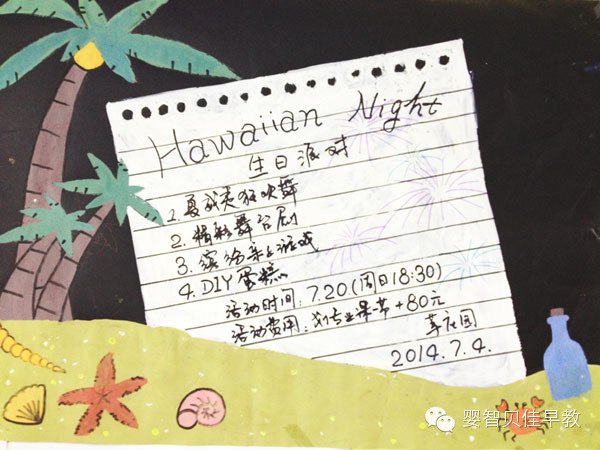 Hawaiian Night
生日派对
1. 夏威夷狂欢舞
2. 精彩舞台剧
3. 缤纷亲子游戏
4. DIY 蛋糕
活动时间：7.20(周日18:30)
活动费用：划专业课一节+80元
2014.7.4.
婴智贝佳早教